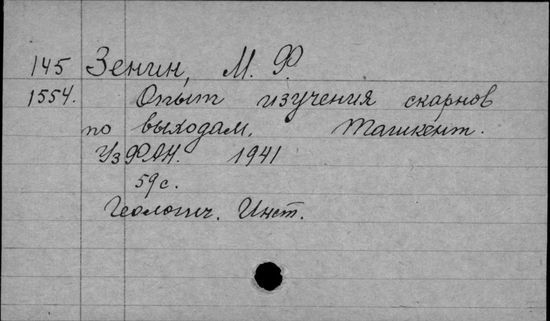 145 Зенин, М. Ф.
1554. Опыт изучения скарнов
по выходам. Ташкент.
УзФАН. 1941
59 с.
Геологич. Инст.